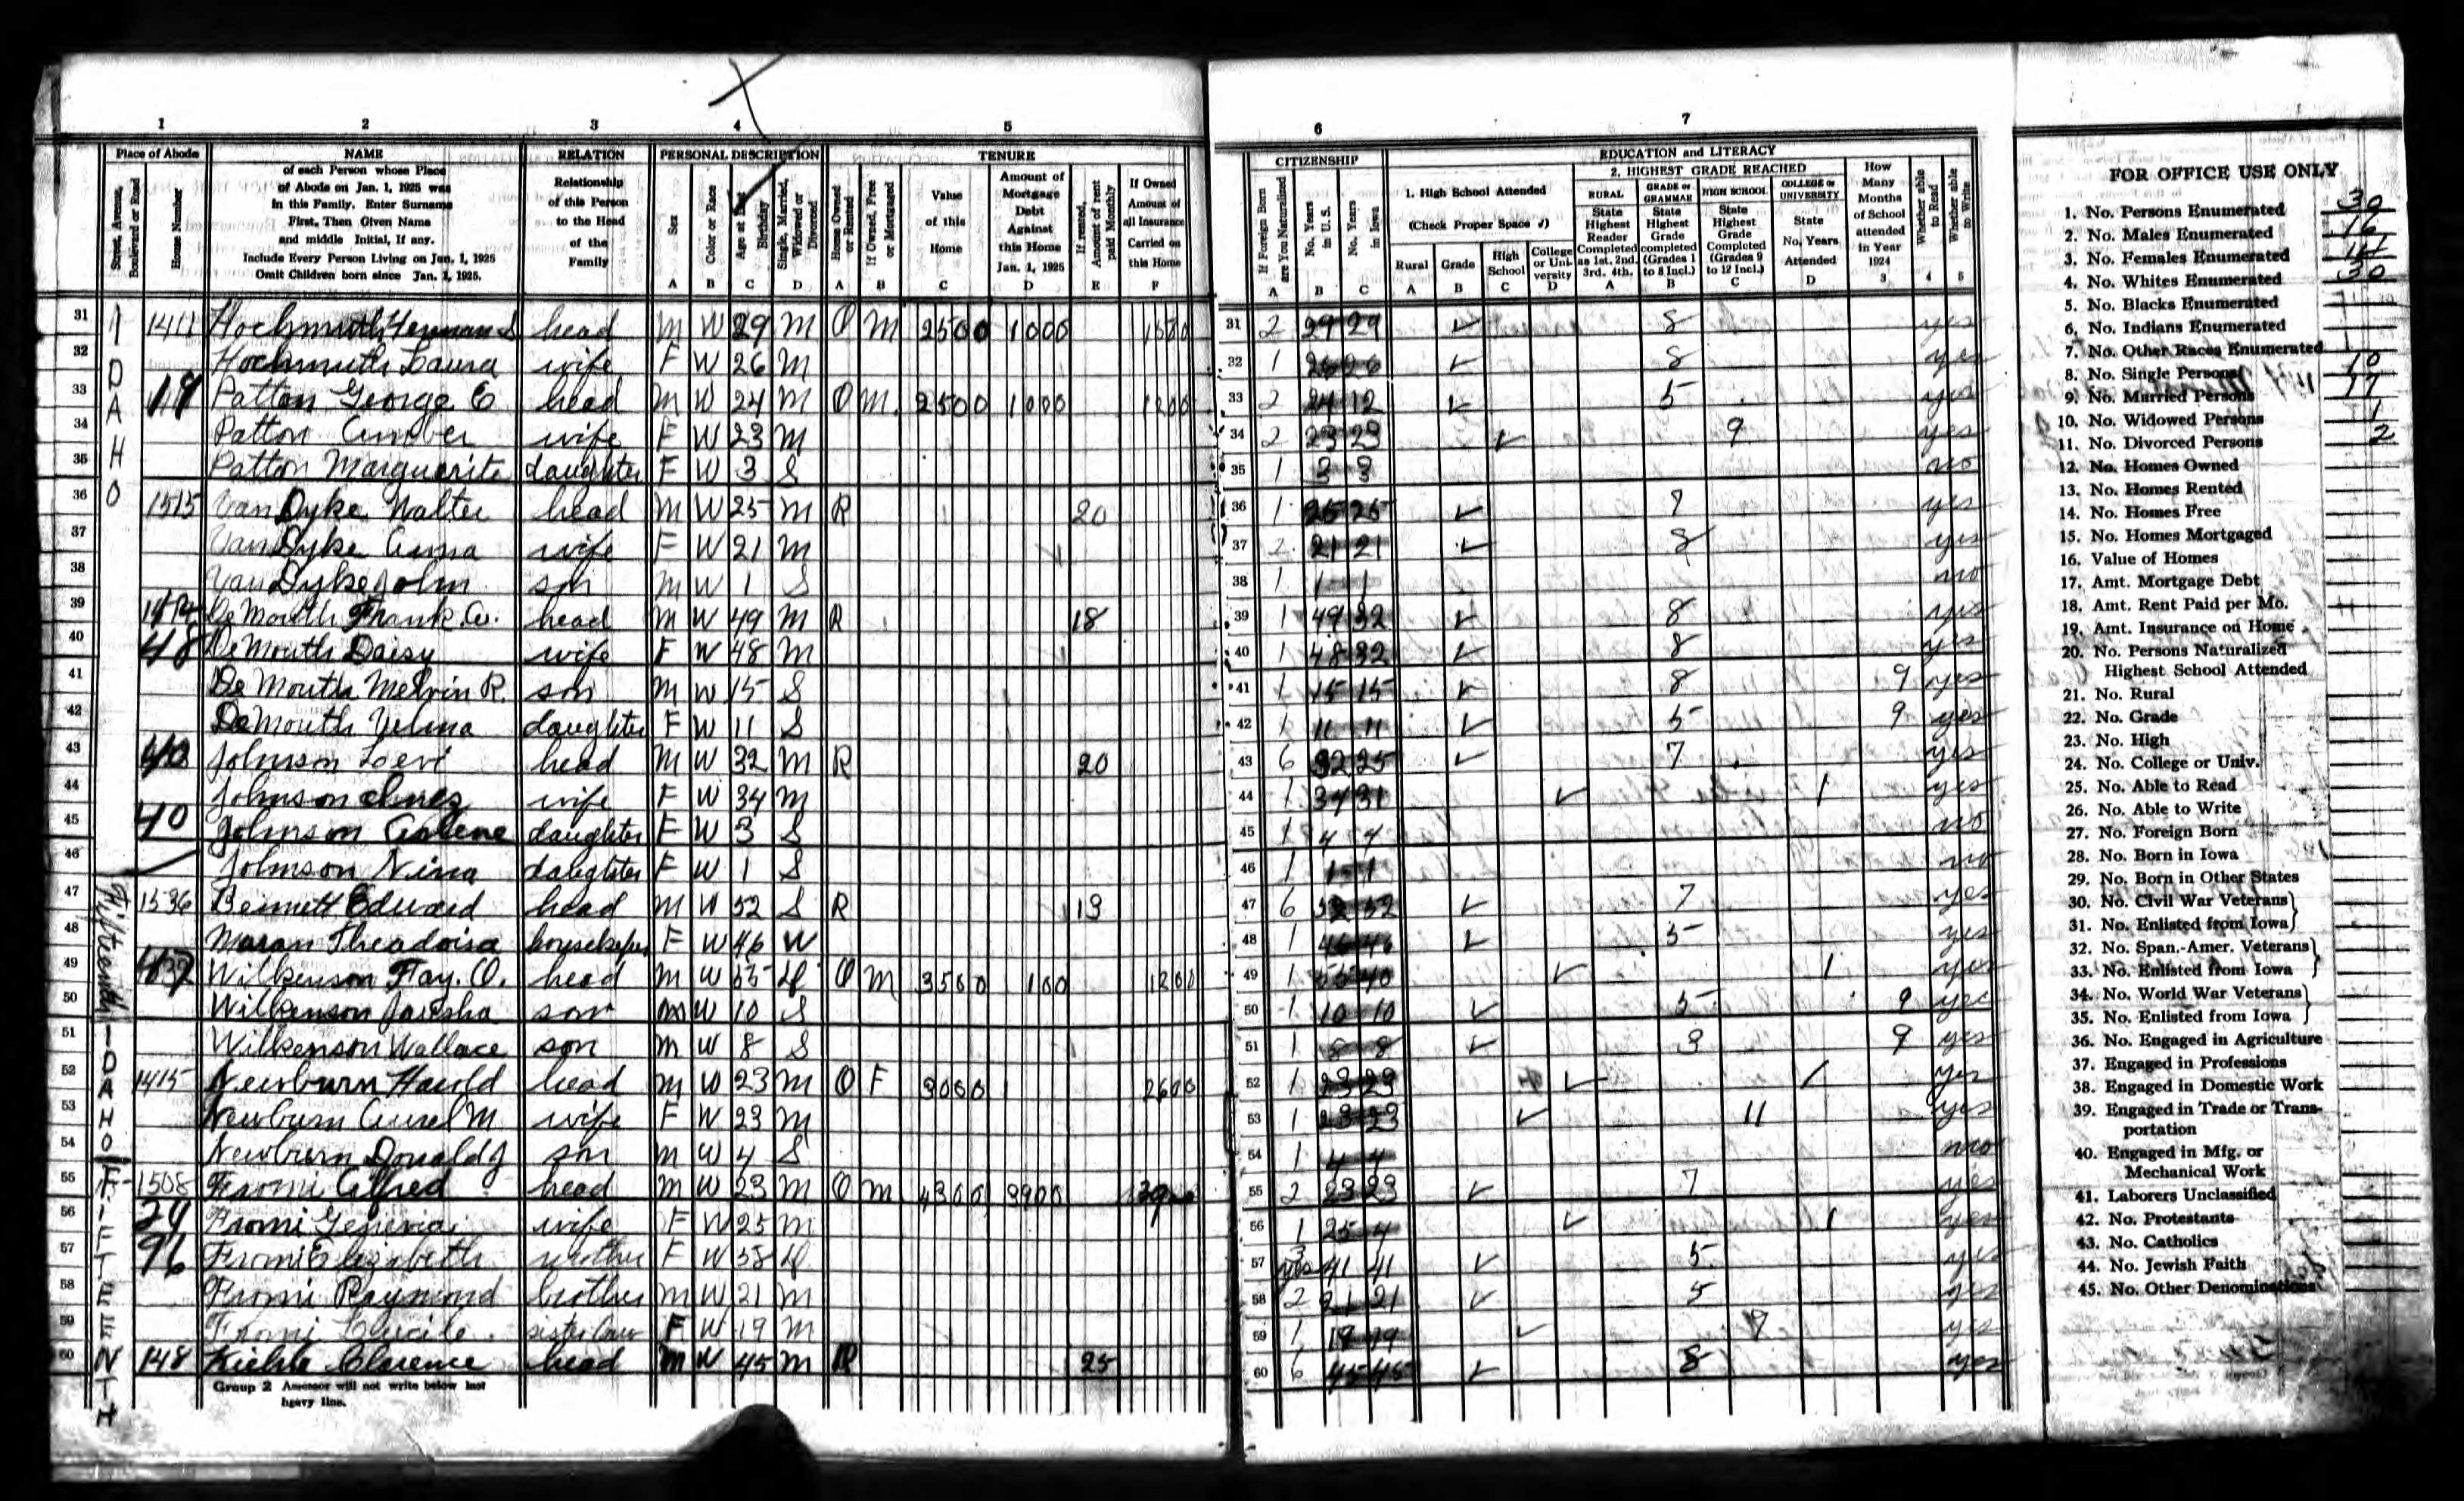 1 2 3 4 5
Place of Abode NAME RELATION PERSONAL DESCRIPTION TENURE
Street, Avenue, Boulevard or Road
Home Number
of each Person whose Place
of Abode on Jan. 1, 1925 was
in this Family. Enter Surname
First, Then Given Name
and middle Initial, if any.
Include Every Person Living on Jan. 1, 1925
Omit Children born since Jan. 1, 1925.
Relationship
of this Person
to the Head
of the
Family
Sex
Color or Race
Age at last Birthday
Single, Married, Widowed or Divorced
Home Owned or Rented
If Owned, Free or Mortgaged
Value
of this
Home
Amount of
Mortgage
Debt
Against
this Home
Jan. 1, 1925
If rented, Amount of rent paid Monthly
If Owned
Amount of
all Insurance
Carried on
this Home
A B C D A B C D E F
IDAHO
31 1411 Hochmuth Herman S head M W 29 M O M 2500 1000 1500
32 Hochmuth Laura wife F W 26 M
33 Patton George E head M W 24 M O M 2500 1000 1200
34 Patton Amber wife F W 23 M
35 Patton Marguerite daughter F W 3 S
36 1515 Van Dyke Walter head M W 25 M R 20
37 Van Dyke Anna wife F W 21 M
38 Van Dyke John son M W 1 S
39 DeMouth Frank W. head M W 49 M R 18
40 48 DeMouth Daisy wife F W 48 M
41 DeMouth Melvin R. son M W 15 S
42 DeMouth Velma daughter F W 11 S
43 40 Johnson Levi head M W 32 M R 20
44 Johnson Inez wife F W 34 M
45 40 Johnson Arlene daughter F W 3 S
46 Johnson Nina daughter F W 1 S
47 1536 Bennett Edward head M W 52 S R 13
48 Theadoisa housekeeper F W 46 W
49 Wilkenson Fay. O. head M W 55 O M 3500 100 1200
50 Wilkenson son M W 10 S
51 Wilkenson Wallace son M W 8 S
IDAHO
52 1415 Newburn Harold head M W 23 M O F 3000 2600
53 Newburn M wife F W 23 M
54 Newburn Donald J son M W 4 S
FIFTEENTH
55 1508 Fromi Alfred head M W 23 M O M 4300 3900
56 29 Fromi Geneva wife F W 25 M
57 96 Fromi Elizabeth mother F W 58
58 Fromi Raymond brother M W 21 M
59 Fromi Lucile sister law F W 19 M
60 148 Clarence head M W 45 M R 25
Group 2 Assessor will not write below last
heavy line.
6 7
CITIZENSHIP EDUCATION and LITERACY
If Foreign Born are You Naturalized
No. Years in U. S.
No. Years in Iowa
1. High School Attended
(Check Proper Space √)
Rural Grade High School College or University
2. HIGHEST GRADE REACHED
RURAL
State
Highest
Reader
Completed
as 1st, 2nd,
3rd. 4th.
GRADE or
GRAMMAR
State
Highest
Grade
completed
(Grades 1
to 8 Incl.)
HIGH SCHOOL
State
Highest
Grade
Completed
(Grades 9
to 12 Incl.)
COLLEGE or
UNIVERSITY
State
No. Years
Attended
How
Many
Months
of School
attended
in Year
1924
Whether able to Read
Whether able to Write
A B C A B C D A B C D 3 4 5
31 2 29 29 ✓ 8 yes
32 1 26 26 ✓ 8 yes
33 2 24 12 ✓ 5 yes
34 2 23 23 ✓ 9 yes
35 1 3 3 no
36 1 25 25 ✓ 7 yes
37 2 21 21 ✓ 8 yes
38 1 1 1 no
39 1 49 32 ✓ 8 yes
40 1 48 32 ✓ 8 yes
41 1 15 15 ✓ 8 9 yes
42 1 11 11 ✓ 5 9 yes
43 6 32 25 ✓ 7 yes
44 1 34 31 ✓ 1 yes
45 1 4 4 no
46 1 1 1 no
47 6 52 52 ✓ 7 yes
48 1 46 46 ✓ 5 yes
49 1 55 40 ✓ 1 yes
50 1 10 10 ✓ 5 9 yes
51 1 8 8 ✓ 3 9 yes
52 1 23 23 ✓ 1 yes
53 1 23 23 ✓ 11 yes
54 1 4 4 no
55 2 23 23 ✓ 7 yes
56 1 25 4 ✓ 1 yes
57 yes 41 41 ✓ 5 yes
58 2 21 21 ✓ 5 yes
59 1 19 19 ✓ 9 yes
60 6 45 45 ✓ 8 yes
FOR OFFICE USE ONLY
1. No. Persons Enumerated 30
2. No. Males Enumerated 16
3. No. Females Enumerated 14
4. No. Whites Enumerated 30
5. No. Blacks Enumerated
6. No. Indians Enumerated
7. No. Other Races Enumerated
8. No. Single Persons 10
9. No. Married Persons 17
10. No. Widowed Persons 1
11. No. Divorced Persons 2
12. No. Homes Owned
13. No. Homes Rented
14. No. Homes Free
15. No. Homes Mortgaged
16. Value of Homes
17. Amt. Mortgage Debt
18. Amt. Rent Paid per Mo.
19. Amt. Insurance on Home
20. No. Persons Naturalized
Highest School Attended
21. No. Rural
22. No. Grade
23. No. High
24. No. College or Univ.
25. No. Able to Read
26. No. Able to Write
27. No. Foreign Born
28. No. Born in Iowa
29. No. Born in Other States
30. No. Civil War Veterans
31. No. Enlisted from Iowa
32. No. Span.-Amer. Veterans
33. No. Enlisted from Iowa
34. No. World War Veterans
35. No. Enlisted from Iowa
36. No. Engaged in Agriculture
37. Engaged in Professions
38. Engaged in Domestic Work
39. Engaged in Trade or Trans-
portation
40. Engaged in Mfg. or
Mechanical Work
41. Laborers Unclassified
42. No. Protestants
43. No. Catholics
44. No. Jewish Faith
45. No. Other Denominations